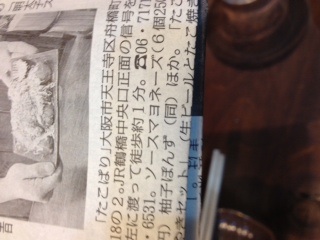 「たこばり」大阪市天王寺区舟橋町
18の2。JR鶴橋中央口正面の信号を
左に渡って徒歩約1分。☎06・717
・6531。ソースマヨネーズ(6個250
円)柚子ぽんず(同)ほか。「たこ
きセット」(生ビールとたこ焼き